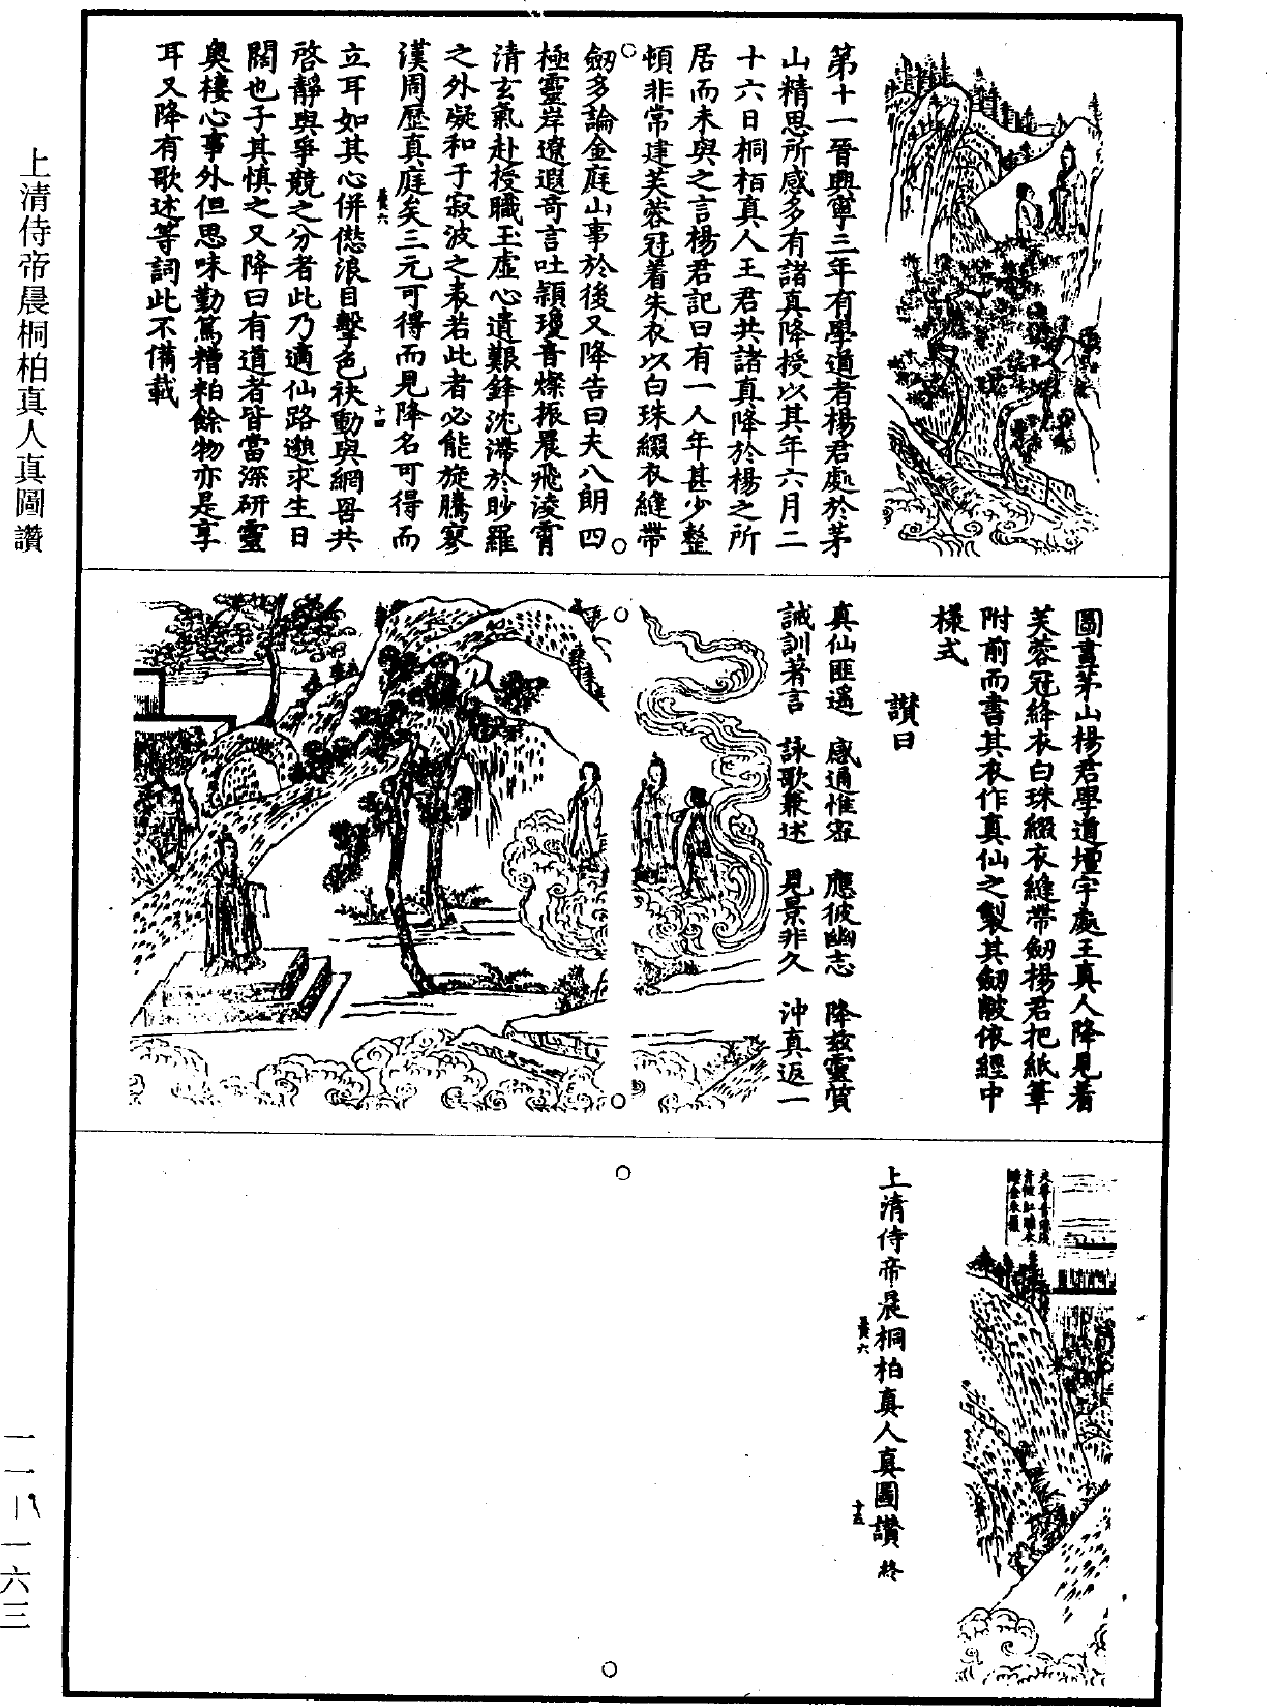 第十一晉興寧三年有學道者楊君處於茅
山精思所感多有諸真降授以其年六月二
十六日桐栢真人王君共諸真降於楊之所
居而未與之言楊君記曰有一人年甚少整
頓非常建芙蓉冠着朱衣以白珠綴衣縫帶
劒多論金庭山事於後又降告曰夫八朗四
極靈岸遼遐奇言吐穎瓊音燦振晨飛淩霄
清玄氣赴授職王虛心遺艱鋒沈滯於眇羅
之外凝和于寂波之表若此者必能旋騰寥
漢周歷真庭矣三元可得而見降名可得而
立耳如其心併愆浪目擊色袂動與網罟共
啓靜與爭競之分者此乃適仙路逃求生日
闊也子其慎之又降曰有道者皆當深研靈
奧棲心事外但思味勤篤糟粕餘物亦是享
耳又降有歌述等詞此不備載
圖畫茅山楊君學道壇宇處王真人降見着
芙蓉冠絳衣白珠綴衣縫帶劒楊君把紙筆
附前而書其衣作真仙之製其劒韍依經中
樣式
讃曰
真仙匪遥 感通惟密 應彼幽志 降兹靈質
誡訓著言 詠歌兼述 見景非久 沖真返一
上清侍帝晨桐柏真人真圖讃 終
十四
十五
上清侍帝晨桐柏真人真圖讚
一一 一六三